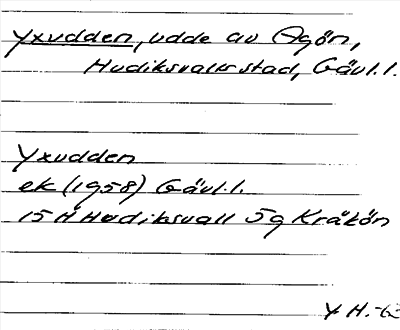 Yxudden, udde av Agön,
Hudiksvalls stad, Gävl.l.
Yxudden
ek (1958) Gävl.l.
15 H Hudiksvall 5g Kråkön
Y H.-63